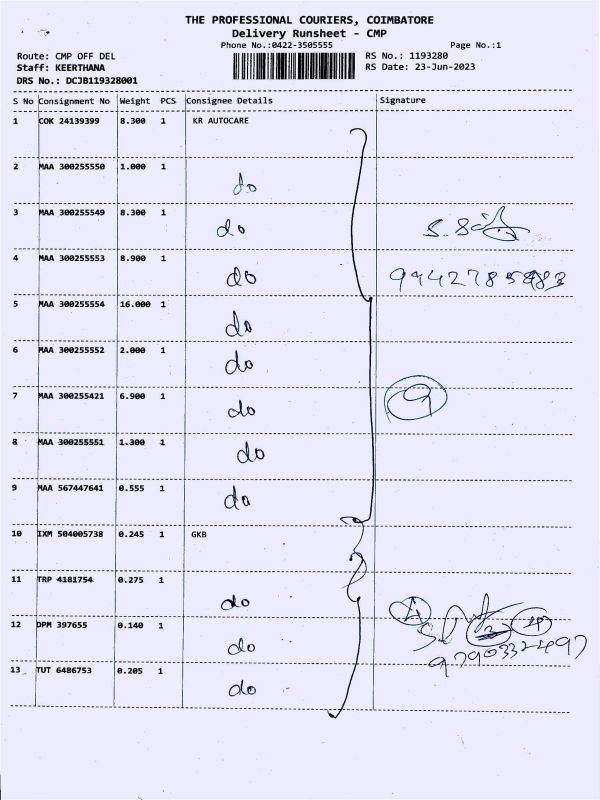 THE PROFESSIONAL COURIERS, COIMBATORE
Delivery Runsheet - CMP
Phone No.:0422-3505555 Page No.:1
Route: CMP OFF DEL RS No.: 1193280
Staff: KEERTHANA RS Date: 23-Jun-2023
DRS No.: DCJB119328001
S No Consignment No Weight PCS Consignee Details Signature
1 COK 24139399 8.300 1 KR AUTOCARE
2 MAA 300255550 1.000 1 do
3 MAA 300255549 8.300 1 do
4 MAA 300255553 8.900 1 do
5 MAA 300255554 16.000 1 do
6 MAA 300255552 2.000 1 do
7 MAA 300255421 6.900 1 do 9
8 MAA 300255551 1.300 1 do
9 MAA 567447641 0.555 1 do
10 IXM 504005738 0.245 1 GKB
11 TRP 4181754 0.275 1 do
12 DPM 397655 0.140 1 do
9790332497
13 TUT 6486753 0.205 1 do